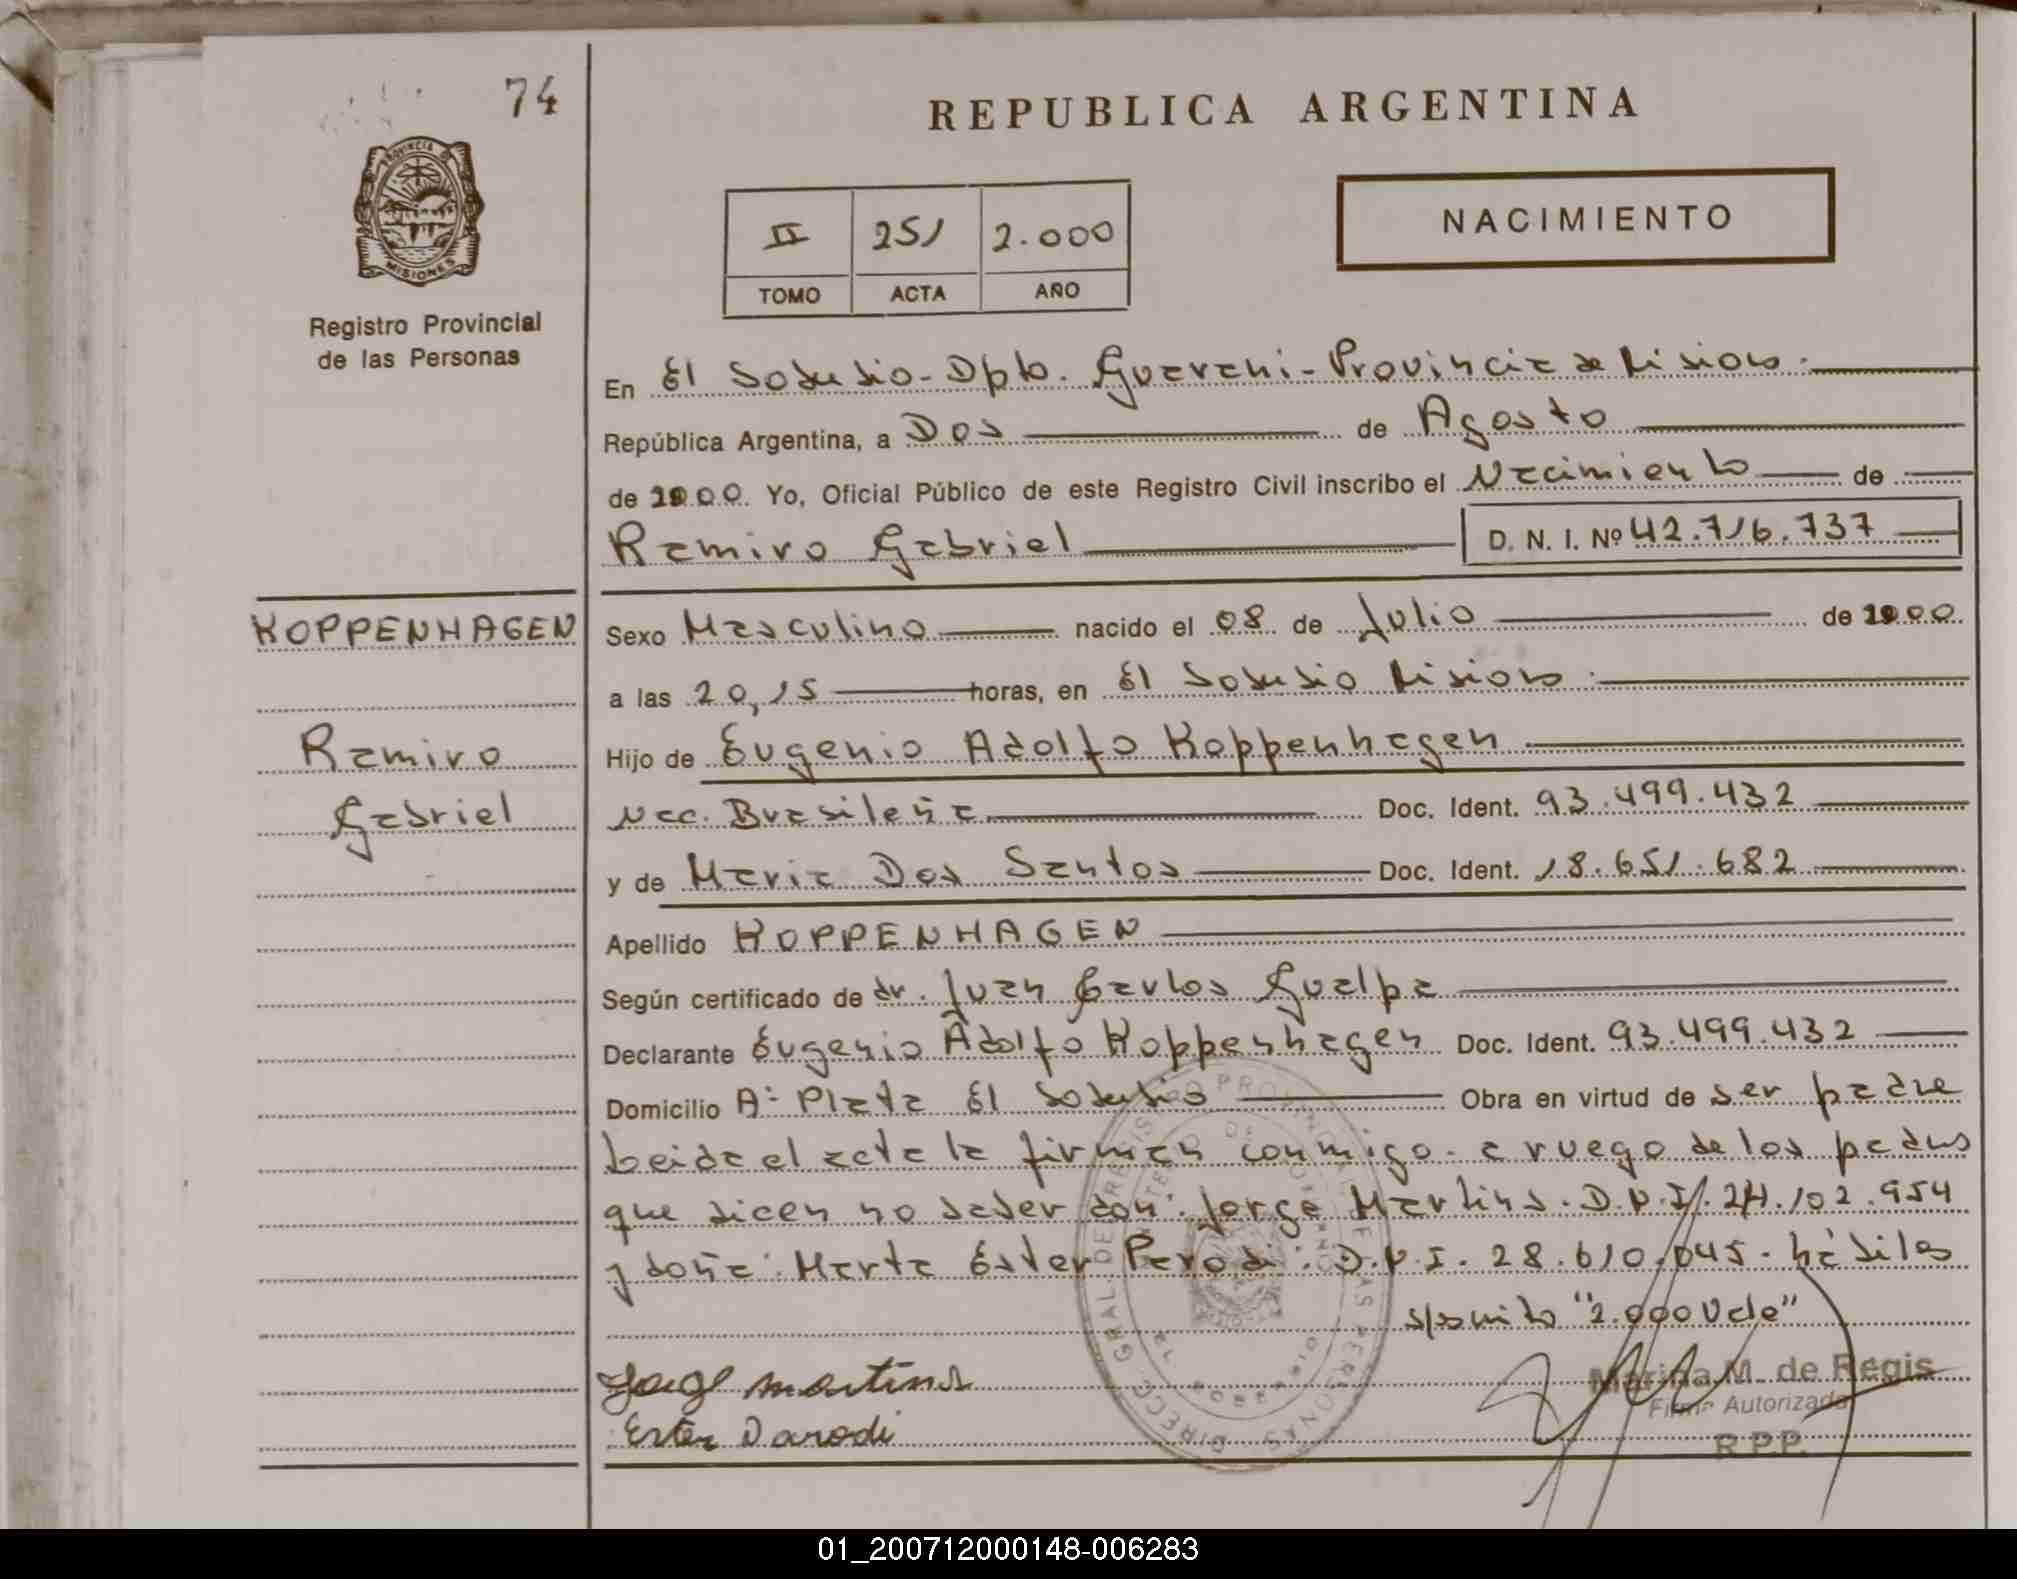 74
REPUBLICA ARGENTINA
PROVINCIA DE
MISIONES
Registro Provincial
de las Personas
II 251 2.000
TOMO ACTA AÑO
NACIMIENTO
En El Soberbio - Dpto. Guarani - Provincia de Misiones.
República Argentina, a Dos de Agosto
de 2000. Yo, Oficial Público de este Registro Civil inscribo el Nacimiento de
Ramiro Gabriel D. N. I. Nº 42.716.737
KOPPENHAGEN
Sexo Masculino nacido el 08 de Julio de 2000.
a las 20,15 horas, en El Soberbio Misiones.
Ramiro
Hijo de Eugenio Adolfo Koppenhagen
Gabriel
Nac. Brasileña Doc. Ident. 93.499.432
y de Maria Dos Santos Doc. Ident. 18.651.682
Apellido KOPPENHAGEN
Según certificado de dr. Juan Carlos Gualpa
Declarante Eugenio Adolfo Koppenhagen Doc. Ident. 93.499.432
Domicilio Aº Plata El Soberbio Obra en virtud de ser padre
Leida el acta la firman conmigo. a ruego de los padres
que dicen no saber don: Jorge Martins. D.N.I. 24.102.954
y doña: Marta Ester Parodi. D.N.I. 28.610.045. hábiles
"2.000 Vale"
Jorge martins
Ester Parodi
Marina M. de Regis
Firma Autorizada
R.P.P.
01_200712000148-006283